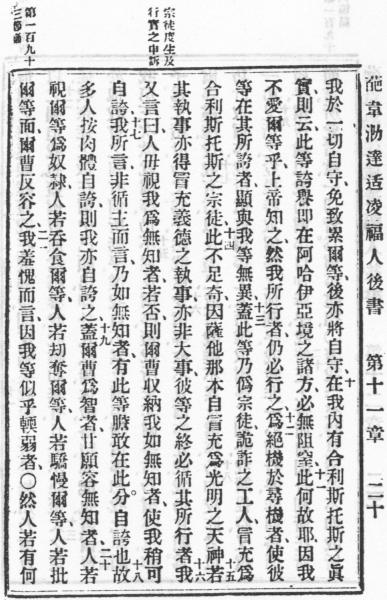 葩韋泐達适凌福人後書 第十一章 二十
我於一切自守、免致累爾等、後亦將自守、十在我內有合利斯托斯之眞
實、則云此等誇譽、即在阿哈伊亞境之諸方、必無阻窒、十一此何故耶、因我
不愛爾等乎、上帝知之、十二然我所行者、仍必行之、爲絕機於尋機者、使彼
等在其所誇者、顯與我等無異、十三蓋此等乃僞宗徒、詭詐之工人、冒充爲
合利斯托斯之宗徒、十四此不足奇、因薩他那本自冒充爲光明之天神、十五若
其執事、亦得冒充義德之執事、亦非大事、彼等之終、必循其所行者、十六我
又言曰、人毋視我爲無知者、若否、則爾曹收納我如無知者、使我稍可
自誇、十七我所言、非循主而言、乃如無知者、有此等膽敢在此分自誇也、十八故
多人按肉體自誇、則我亦自誇之、十九蓋爾曹爲智者、甘願容無知者、二十人若
視爾等爲奴隸、人若吞食爾等、人若劫奪爾等、人若驕慢爾等、人若批
爾等面、爾曹反容之、二一我羞愧而言、因我等似乎輭弱者、○然人若有何
宗徒度生及
行實之申訴
第一百九十
三節誦